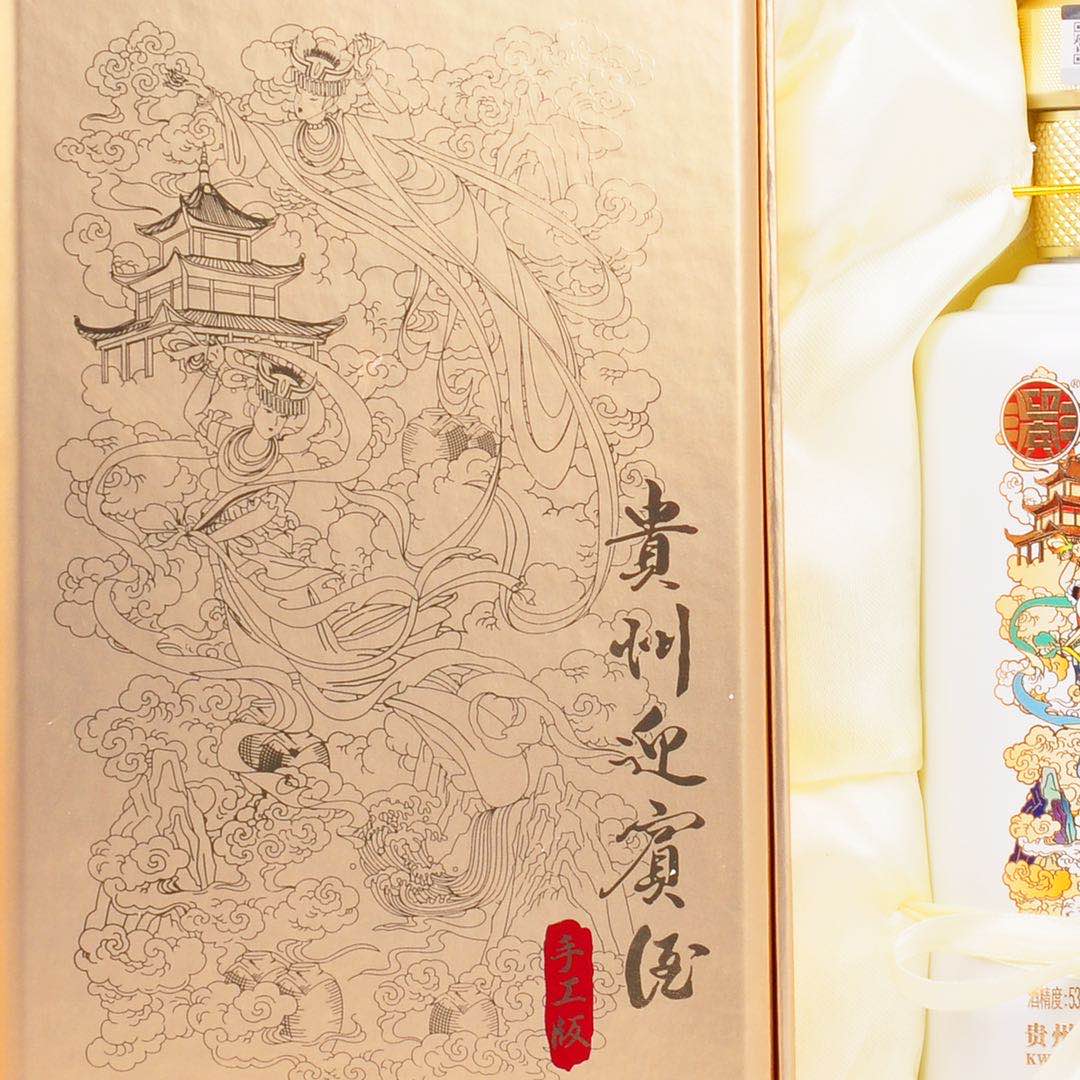 貴州迎賓酒
手工版
®
酒精度:53
贵州
KW